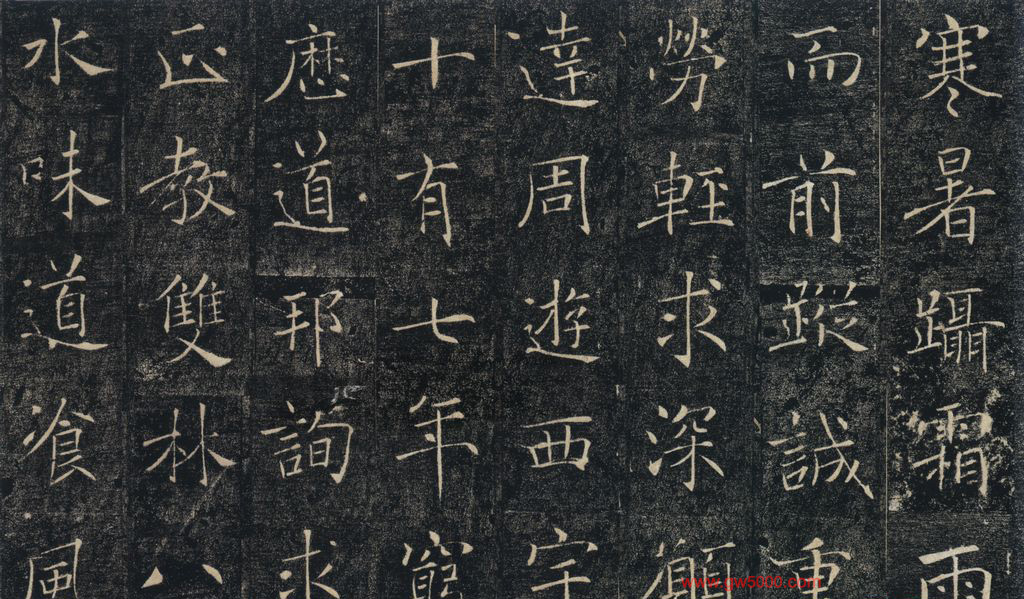 寒暑躡霜雨
而前蹤誠重
勞輕求深願
達周遊西宇
十有七年窮
歷道邦詢求
正教雙林八
水味道飡風
www.gw5000.com